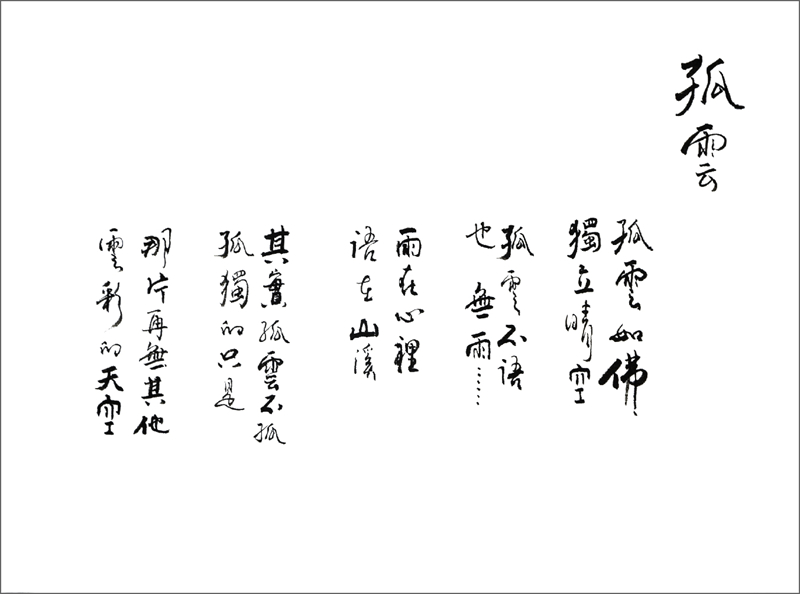 孤雲
孤雲如佛
獨立晴空
孤雲不語
也無雨……
雨在心裡
語在山溪
其實孤雲不孤
孤獨的只是
那片再無其他
雲彩的天空